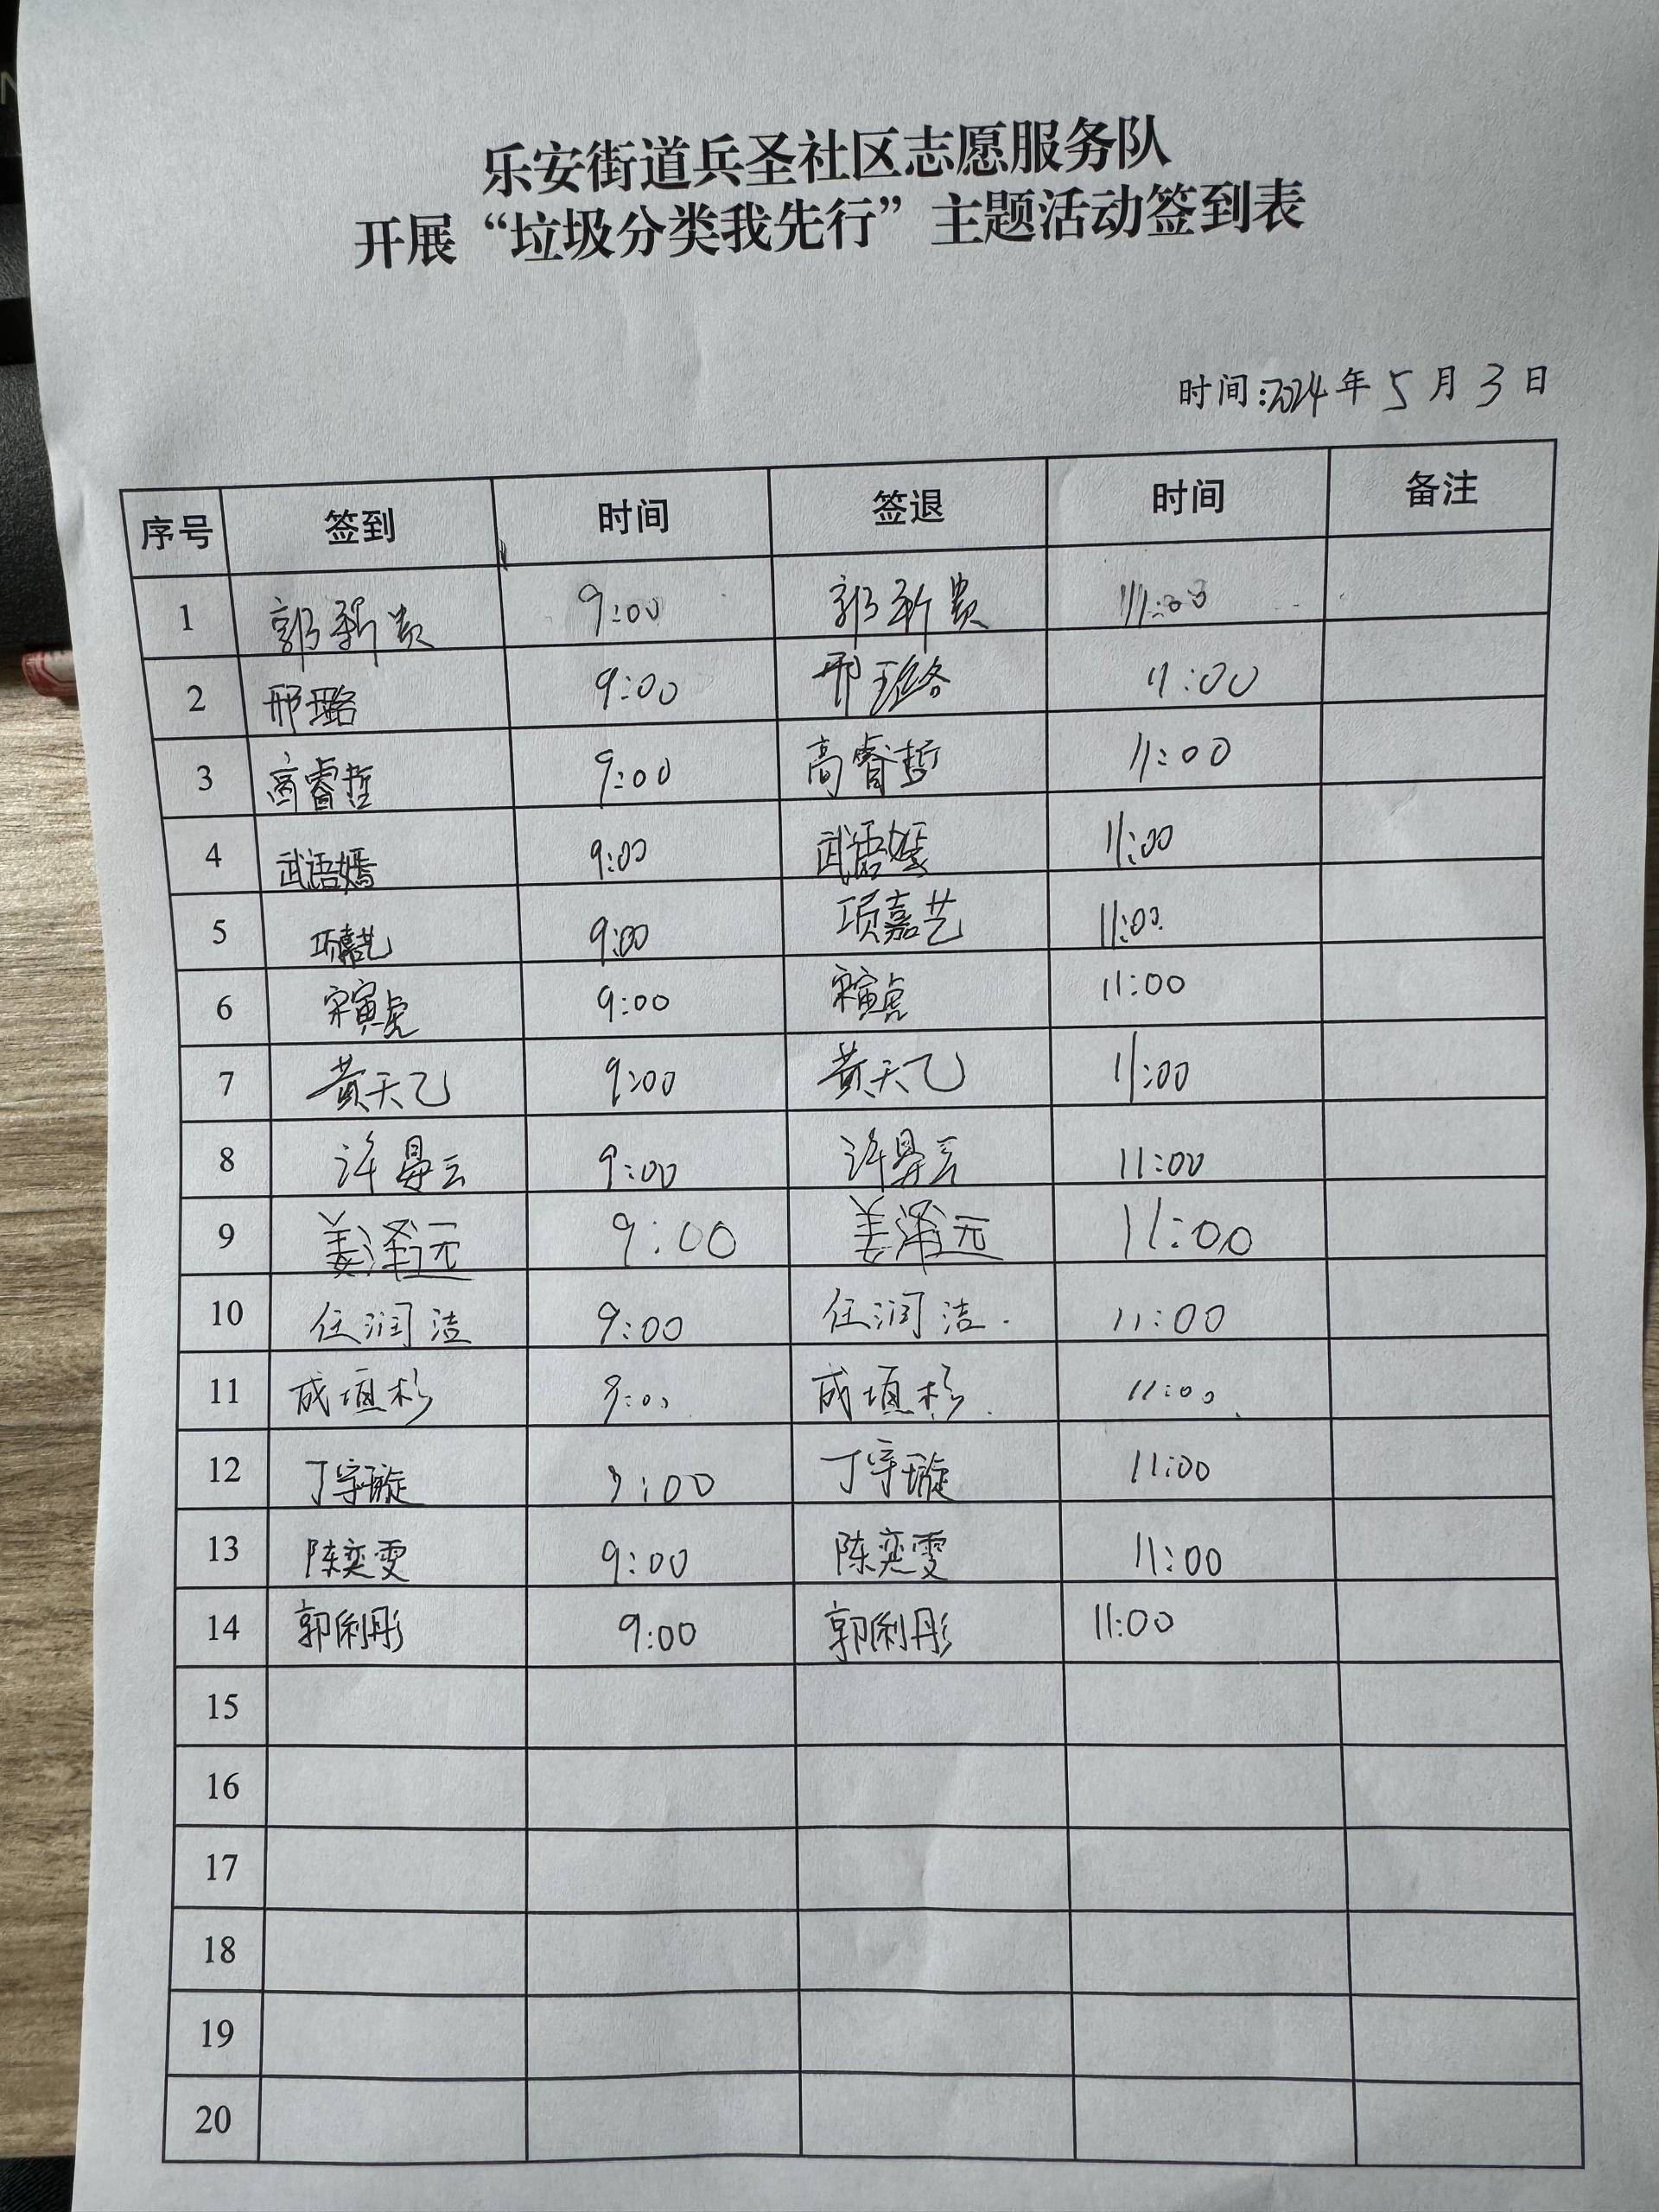 乐安街道兵圣社区志愿服务队
开展“垃圾分类我先行”主题活动签到表
时间:2024年5月3日
序号 签到 时间 签退 时间 备注
1 郭新贵 9:00 郭新贵 11:00
2 邢璐 9:00 邢璐 11:00
3 高睿哲 9:00 高睿哲 11:00
4 武语嫣 9:00 武语嫣 11:00
5 项嘉艺 9:00 项嘉艺 11:00
6 宋寅虎 9:00 宋寅虎 11:00
7 黄天乙 9:00 黄天乙 11:00
8 9:00 11:00
9 姜泽远 9:00 姜泽远 11:00
10 任润洁 9:00 任润洁 11:00
11 成垣杉 9:00 成垣杉 11:00
12 丁宇璇 9:00 丁宇璇 11:00
13 陈奕雯 9:00 陈奕雯 11:00
14 郭俐彤 9:00 郭俐彤 11:00
15
16
17
18
19
20